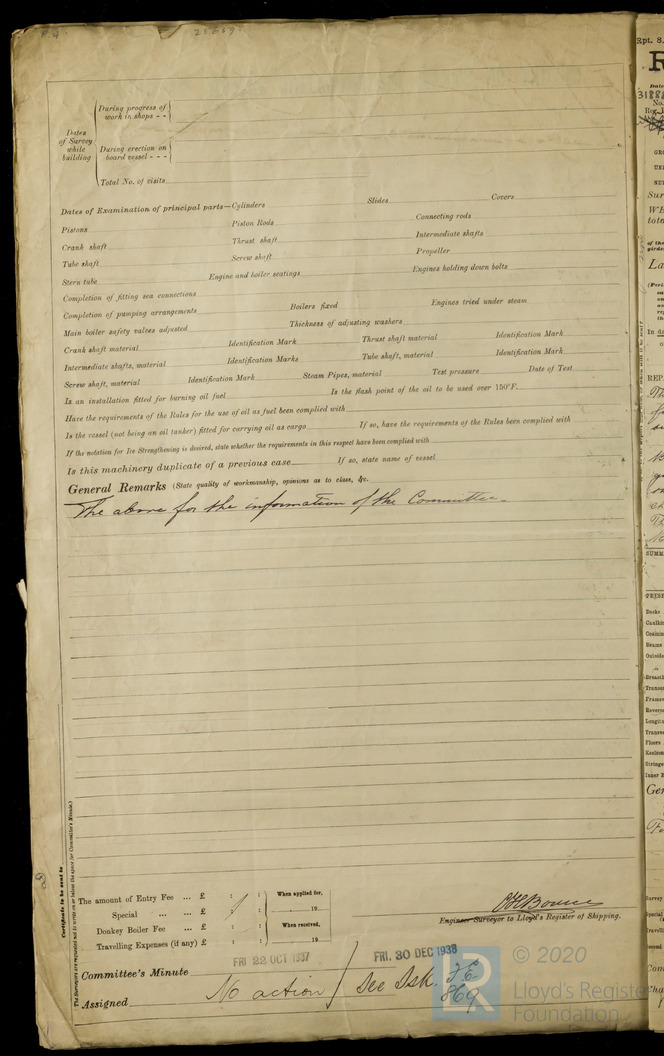 During progress of
work in shops - -
Dates
of Survey
while
building
During erection on
board vessel - - -
Total No. of visits
Dates of Examination of principal parts—Cylinders Slides Covers
Pistons Piston Rods Connecting rods
Crank shaft Thrust shaft Intermediate shafts
Tube shaft Screw shaft Propeller
Stern tube Engine and boiler seatings Engines holding down bolts
Completion of fitting sea connections
Completion of pumping arrangements Boilers fixed Engines tried under steam
Main boiler safety valves adjusted Thickness of adjusting washers
Crank shaft material Identification Mark Thrust shaft material Identification Mark
Intermediate shafts, material Identification Marks Tube shaft, material Identification Mark
Screw shaft, material Identification Mark Steam Pipes, material Test pressure Date of Test
Is an installation fitted for burning oil fuel Is the flash point of the oil to be used over 150°F.
Have the requirements of the Rules for the use of oil as fuel been complied with
Is the vessel (not being an oil tanker) fitted for carrying oil as cargo If so, have the requirements of the Rules been complied with
If the notation for Ice Strengthening is desired, state whether the requirements in this respect have been complied with
Is this machinery duplicate of a previous case If so, state name of vessel
General Remarks (State quality of workmanship, opinions as to class, &c.
The above for the information of the Committee.
Certificate to be sent to
(The Surveyors are requested not to write on or below the space for Committee's Minute.)
The amount of Entry Fee ... £ : :
Special ... ... £ : :
Donkey Boiler Fee ... £ : :
Travelling Expenses (if any) £ : :
When applied for,
19
When received,
19
Engineer Surveyor to Lloyd's Register of Shipping.
FRI 22 OCT 1937
FRI. 30 DEC 1938
Committee's Minute
Assigned
No action
See Ssk. J.E.
869
© 2020
Lloyd's Register
Foundation
Rpt. 8.